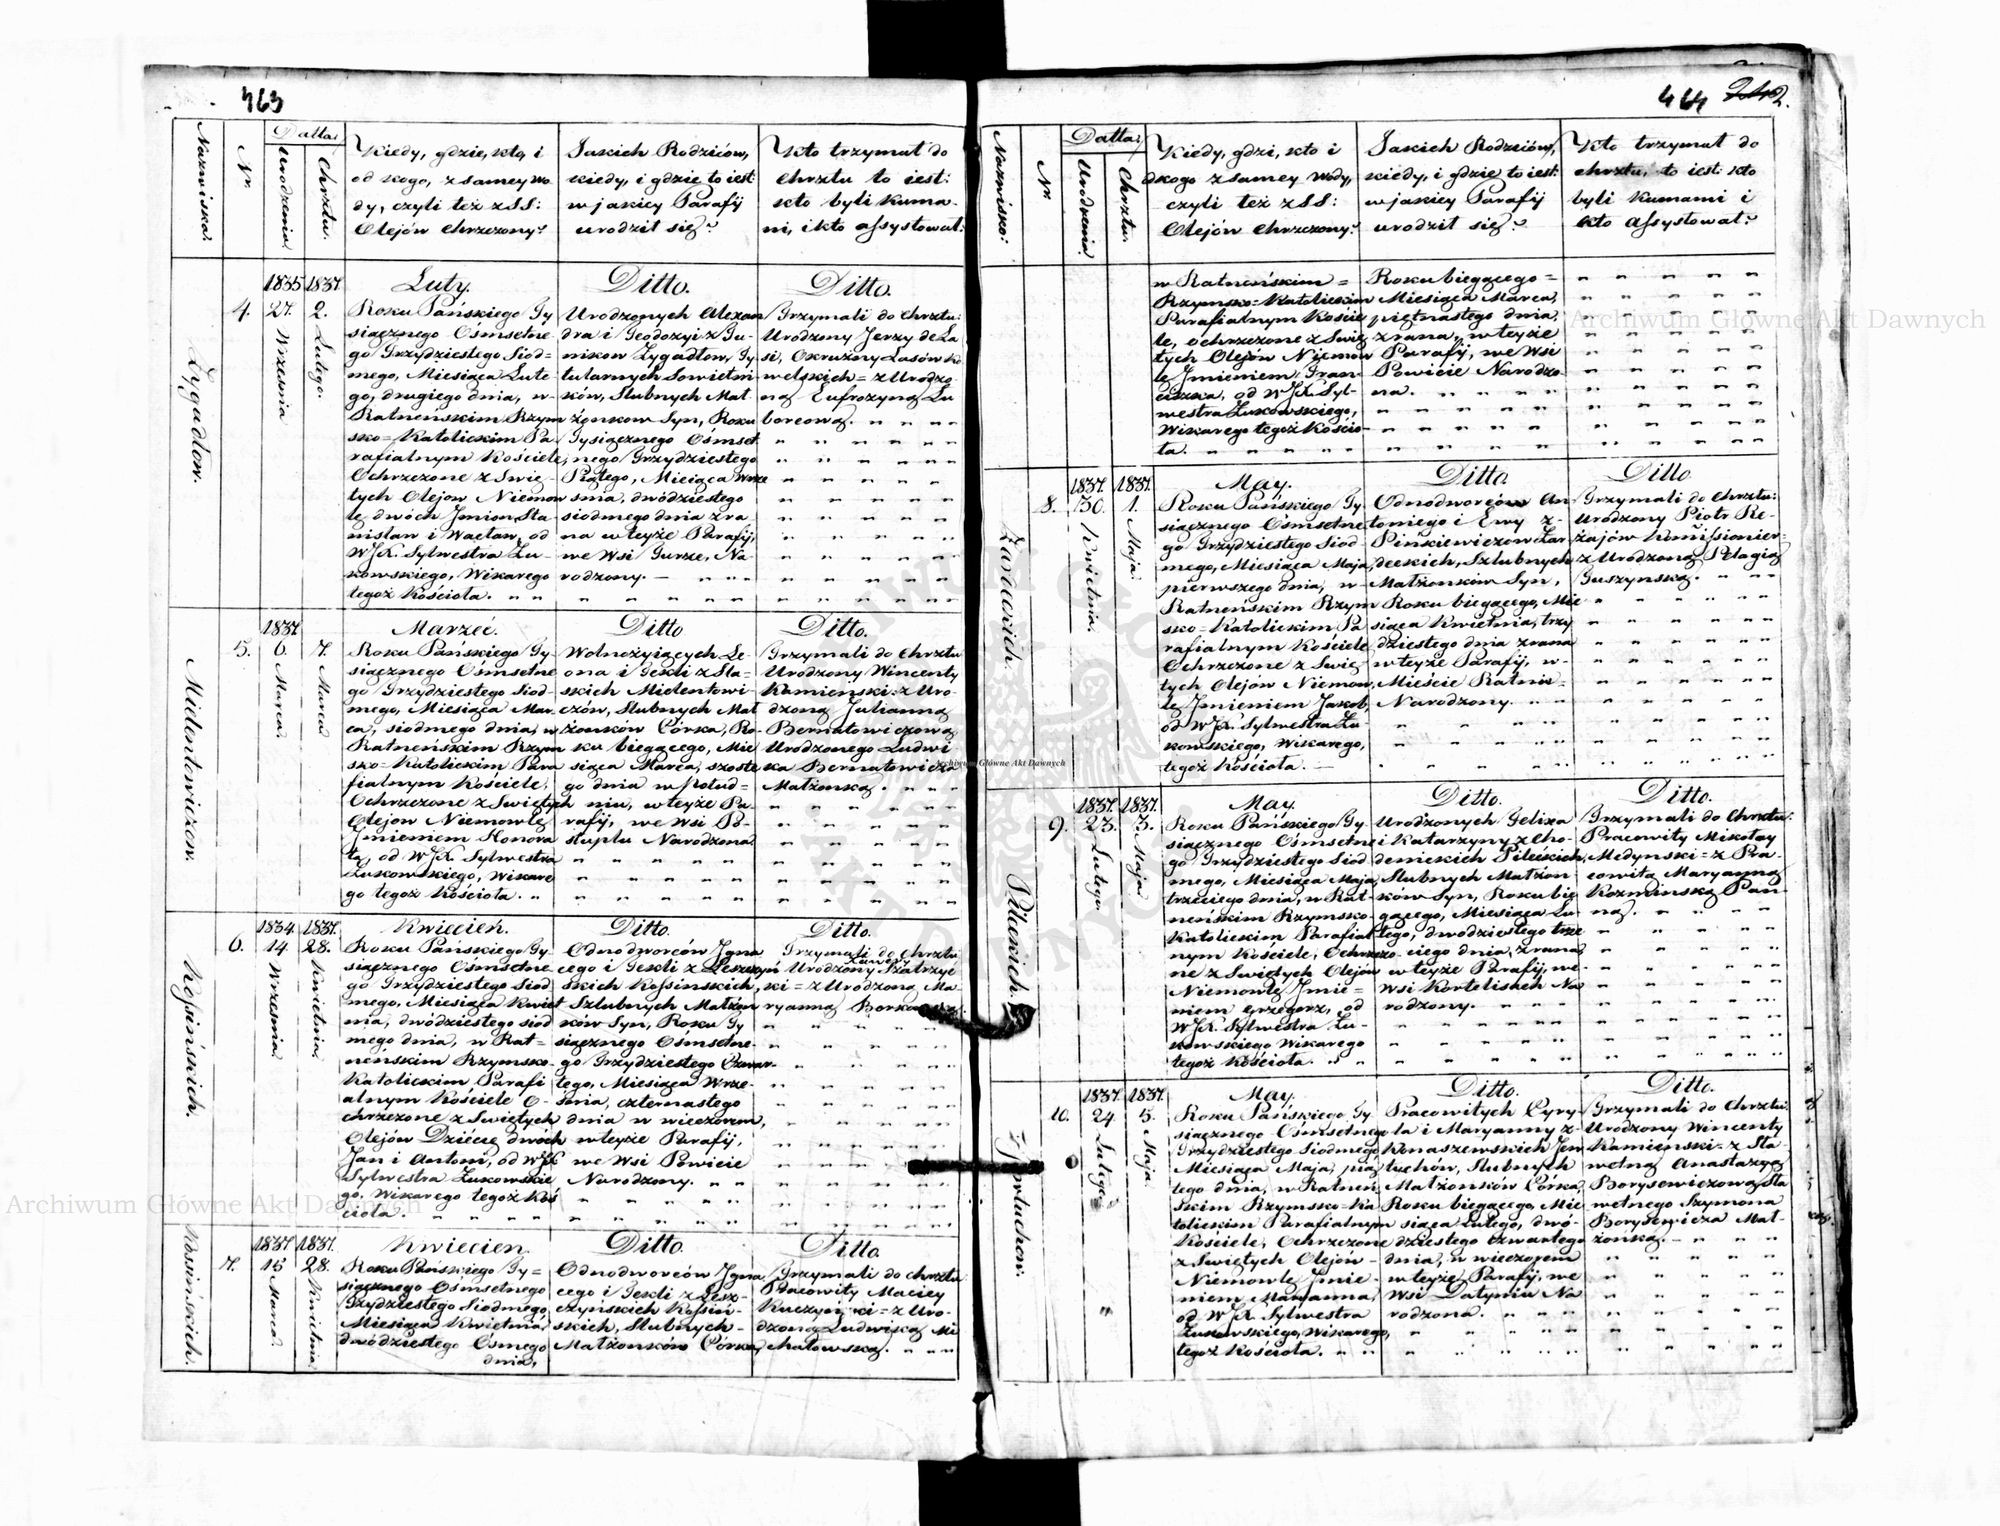 463
Nazwiska:
Nr.
Datta:
Urodzenia:
Chrztu:
Kiedy, gdzie, kto, i
od kogo, z samey wo
dy, czyli też z SS:
Olejów chrzczony?
Jakich Rodziców,
kiedy, i gdzie to iest:
w jakiey Parafij
urodził się?
Kto trzymał do
Chrztu to iest:
kto byli Kuma-
mi, i kto assystował:
Zygadłow.
4.
1835
27.
Września
1837
2.
Lutego.
Luty.
Roku Pańskiego Ty
siącznego Ośmsetne
go Trzydziestego Siód=
mego, Miesiąca Lute
go, drugiego dnia, w-
Ratneńskim Rzym
sko=Katolickim Pa-
rafialnym Kościele,
Ochrzczone z Swię-
tych Olejow Niemow
lę dwóch Jmion Sta-
nisław i Wacław, od
WJX. Sylwestra Żu-
kowskiego, Wikarego
tegoż Kościoła. " "
Ditto.
Urodzonych Alexan
dra i Teodozyi z Gu-
nikow Zygadłow, Ty
tularnych Sowietni
ków, Slubnych Mał-
żonkow Syn, Roku
Tysiącznego Ośmset
nego Trzydziestego
Piątego, Miesiąca Wrze
snia, dwódziestego
siodmego dnia zra
na w teyże Parafij,
we Wsi Gurze, Na
rodzony. —
Ditto.
Trzymali do chrztu:
Urodzony Jerzy de La
si, Okrużny Lasów Ko
welskich = z Urodzo
ną Eufrozyną Lu
borcową.
Midentowiczow.
5.
1837
6.
Marca.
7.
Marca
Marzec.
Roku Pańskiego Ty-
siącznego Ośmsetne
go Trzydziestego Siód
mego, Miesiąca Mar
ca, siodmego dnia, w
Ratneńskim Rzym
sko=Katolickim Para
fialnym Kościele,
Ochrzczone z Swiętych
Olejow Niemowlę
Jmieniem Honora
ta, od WJX. Sylwestra
Żukowskiego, Wikare
go tegoż Kościoła. "
Ditto
Wolnożyiących Le-
ona i Tekli z Sla=
skich Midentowi-
czów, Slubnych Mał
żonków Córka, Ro-
ku biegącego, Mie
siąca Marca, szoste
go dnia w połud=
niu, w teyże Pa-
rafij, we Wsi Po-
stuplu Narodzona.
Ditto.
Trzymali do Chrztu
Urodzony Wincenty
Kamieński: z Uro-
dzoną Julianną
Bernatowiczową
Urodzonego Ludwi-
ka Bernatowicza
Małżonką.
Kossińskich,
6.
1834
14
Września
1837.
28.
Kwietnia
Kwiecień.
Roku Pańskiego Ty-
siącznego Ośmsetne
go Trzydziestego Siód
mego, Miesiąca Kwiet
nia, dwódziestego siód
mego dnia, w Rat=
neńskim Rzymsko-
Katolickim Parafi
alnym Kościele O-
chrzczone z Swiętych
Olejów Dziécię dwóch
Jan i Antoni, od WJX
Sylwestra Żukowskie
go, Wikarego tegoż Koś
cioła.
Ditto.
Odnodworców Igna
cego i Tekli z Leszczyń
skich Kossinskich,
Szlubnych Małżon
ków Syn, Roku Ty
siącznego Ośmsetne-
go Trzydziestego Czwar-
tego, Miesiąca Wrze-
śnia, czternastego
dnia w wieczorem,
w teyże Parafij,
we Wsi Powicie
Narodzony.
Ditto.
Trzymali do Chrztu
Urodzony Szatrzyc
ki = z Urodzoną Ma-
ryanną Borkowską.
Kossińskich.
7.
1837
15
Marca.
1837.
28.
Kwietnia
Kwiecien.
Roku Pańskiego Ty=
siącznego Ośmsetnego
Trzydziestego Siodmego,
Miesiąca Kwietnia,
dwódziestego Ósmego
dnia,
Ditto.
Odnodworców Igna
cego i Tekli z Lesz-
czyńskich Kossiń-
skich, Slubnych-
Małżonków Córka,
Ditto.
Trzymali do chrztu:
Pracowity Maciey
Kuczyński = z Uro-
dzoną Ludwiką Mi
chałowską.
464
Nazwisko:
Nr
Datta:
Urodzenia:
Chrztu.
Kiedy, gdzi, kto i
odkogo z samey Wody,
czyli też z SS:
Olejów Chrzczony?
Jakich Rodziców,
kiedy, i gdzie to iest:
w jakiey Parafij
urodził się?
Kto trzymał do
chrztu, to iest: kto
byli Kumami i
kto Assystował?
w Ratneńskim =
Rzymsko=Katolickim
Parafialnym Koście
le, ochrzczone z Swię
tych Olejów Niemow
lę Jmieniem Fran-
ciszka, od WJX. Syl-
westra Żukowskiego,
Wikarego tegoż Kościo-
ła.
Roku biegącego =
Miesiąca Marca,
piętnastego dnia,
z rana, w teyże
Parafij, we Wsi
Powicie Narodzo
na.
Zaradckich
8.
1837.
30.
Kwietnia.
1837.
1.
Maja.
May.
Roku Pańskiego Ty-
siącznego Ośmsetne
go Trzydziestego Siód-
mego, Miesiąca Maja,
pierwszego dnia, w-
Ratneńskim Rzym
sko=Katolickim Pa
rafialnym Kościele
Ochrzczone z Swię
tych Olejów Niemow,
lę Jmieniem Jakob,
od WJX. Sylwestra Żu-
kowskiego, Wikarego,
tegoż Kościoła. —
Ditto
Odnodworców An-
toniego i Ewy z-
Pinkiewiczow Zar
deckich, Szlubnych
Małżonków Syn,
Roku biegącego, Mie
siąca Kwietnia, trzy
dziestego dnia z rana
w teyże Parafij, w-
Mieście Ratnie=
Narodzony.
Ditto.
Trzymali do Chrztu:
Urodzony Piotr Re-
żajów Kommissioner-
z Urodzoną Pelagią
Guszynską.
Pileckich.
9.
1837.
23.
Lutego.
1837.
3.
Maja
May.
Roku Pańskiego Ty-
siącznego Ośmsetne
go Trzydziestego Siód
mego, Miesiąca Maja,
trzeciego dnia, w Rat-
neńskim Rzymsko-
Katolickim Parafial
nym Kościele, Ochrzczo
ne z Swiętych Olejów
Niemowlę Jmie=
niem Grzegorz, od
WJX. Sylwestra Żu-
kowskiego Wikarego
tegoż Kościoła.
Ditto.
Urodzonych Felixa
i Katarzyny z Cho-
demickich Pileckich,
Slubnych Małżon
ków Syn, Roku bie
gącego, Miesiąca Lu-
tego, dwódziestego trze
ciego dnia, z rana
w teyże Parafij, we-
Wsi Kortelisach Na
rodzony.
Ditto.
Trzymali do Chrztu:
Pracowity Mikołay
Medynski = z Pra-
cowitą Maryanną
Kozminską Pan-
ną.
10.
1837.
24.
Lutego
1837.
5.
Maja.
May.
Roku Pańskiego Ty
siącznego Ośmsetnego
Trzydziestego Siódmego
Miesiąca Maja, pią
tego dnia, w Ratneń,
skim Rzymsko=Ka
tolickim Parafialnym
Kościele, Ochrzczone
z Swiętych Olejów-
Niemowlę Jmie-
niem Maryanna,
od WJX. Sylwestra
Żukowskiego, Wikarego,
tegoż Kościoła.
Ditto.
Pracowitych Cyry-
la i Maryanny z-
Małżonków Córka,
Roku biegącego, Mie
siąca Lutego, dwó-
dziestego Czwartego
dnia, w wieczorem
w teyże Parafij, we
Wsi Datyniu Na
rodzona.
Ditto.
Trzymali do Chrztu:
Urodzony Wincenty
Kamieński = z Sła-
wetną Anastazyą
Borysewiczową Sła
wetnego Szymona
Borysewicza Mał-
żonką.
Archiwum Główne Akt Dawnych
Archiwum Główne Akt Dawnych
Archiwum Główne Akt Dawnych